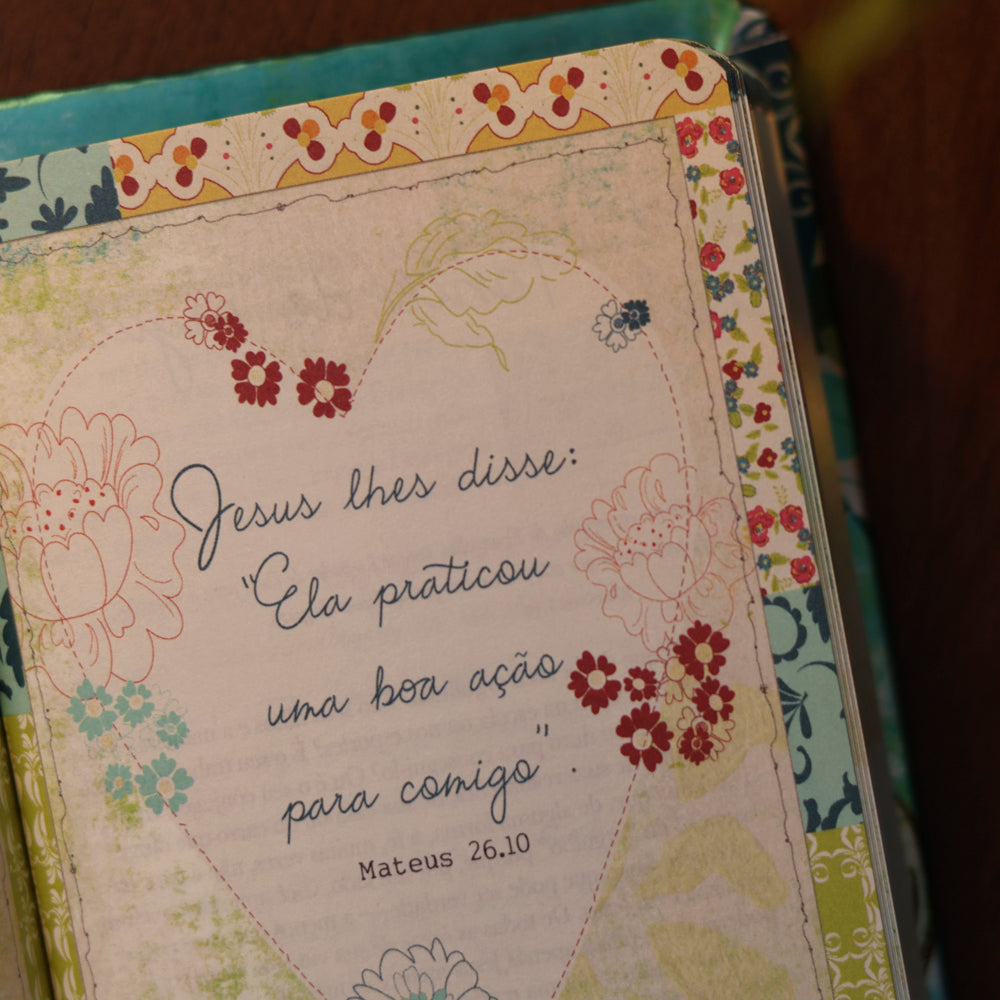 Jesus lhes disse:
"Ela praticou
uma boa ação
para comigo".
Mateus 26.10